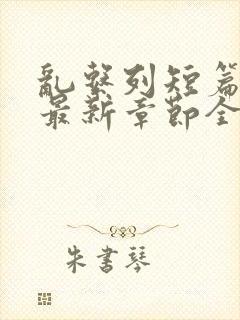 亂繫列短篇
最新章節全
朱書琴